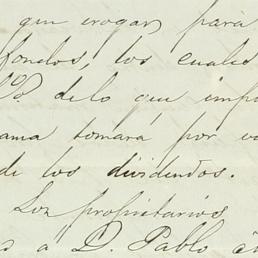 que erogar para
fondos, los cuales
de lo que imp
ama tomará por
de los dividendos.
Los propietarios
a D. Pablo